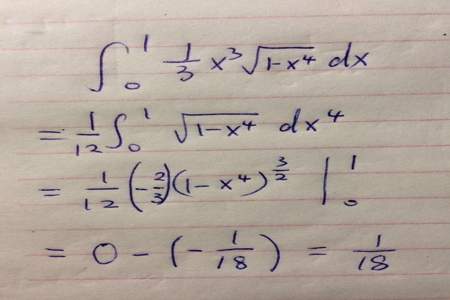 ∫₀¹ 1/3 x³ √(1-x⁴) dx
= 1/12 ∫₀¹ √(1-x⁴) dx⁴
= 1/12 (-2/3)(1-x⁴)^(3/2) |₀¹
= 0 - (-1/18) = 1/18